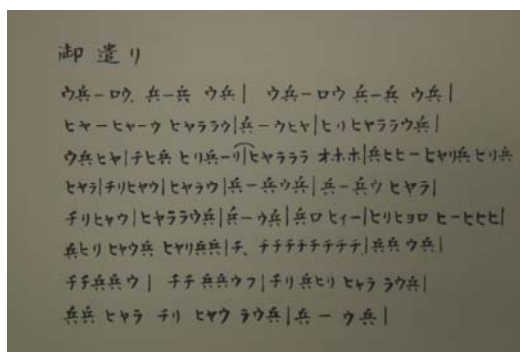 御遣り
ウ兵ーロウ、兵ー兵 ウ兵| ウ兵ーロウ 兵ー兵 ウ兵|
ヒャーヒャーウ ヒヤララウ|兵ーウヒャ|ヒリヒヤララウ兵|
ウ兵ヒャ|チヒ兵 ヒリ兵ーリ|ヒャラララ オホホ|兵ヒヒーヒャリ兵ヒリ兵
ヒヤラ|チリヒヤウ|ヒヤラウ|兵ー兵ウ兵|兵ー兵ウ ヒヤラ|
チリヒャウ|ヒャララウ兵|兵ーウ兵|兵ロヒィー|ヒリヒョロ ヒーヒヒヒ|
兵ヒリ ヒヤウ兵 ヒヤリ兵兵|チ、チチチチチチチチ|兵兵 ウ兵|
チチ兵兵ウ| チチ 兵兵ウフ|チリ兵ヒリ ヒャラ ラウ兵|
兵兵 ヒヤラ チリ ヒヤウ ラウ兵|兵ーウ兵|